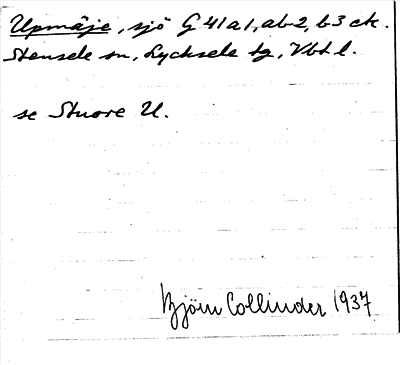 Upmäje, sjö G 41 a 1, ab 2, b 3 ek.
Stensele sn, Lycksele tg, Vbtl.
se Stuore U.
Björn Collinder 1937